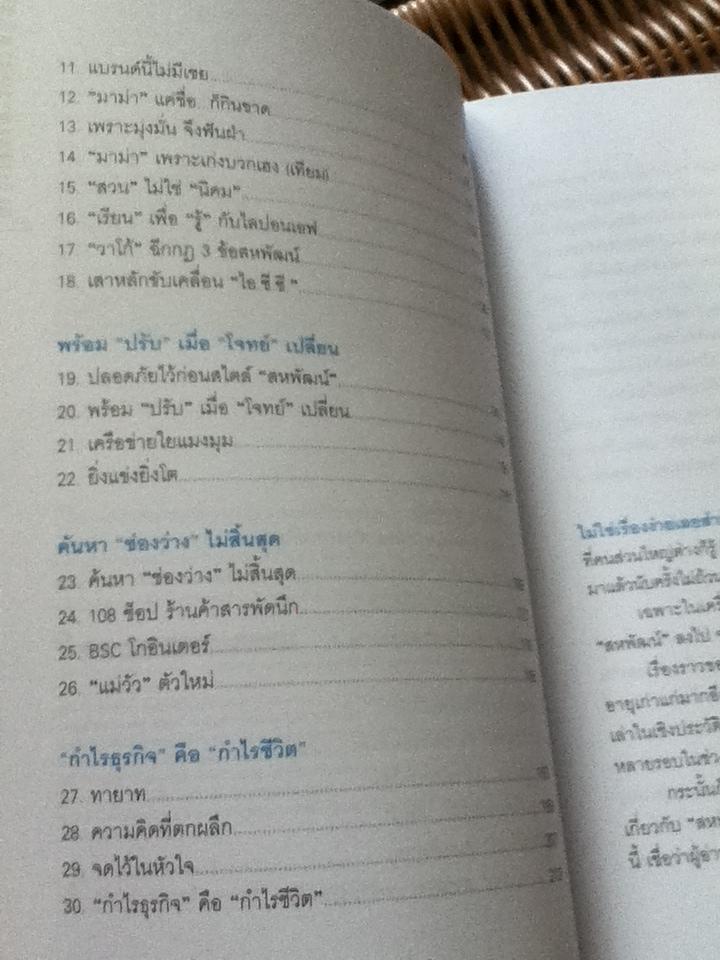 11. แบรนด์นี้ไม่มีเชย
12. "มาม่า" แค่ชื่อ...ก็กินขาด
13. เพราะมุ่งมั่น จึงฟันฝ่า
14. "มาม่า" เพราะเก่งบวกเฮง (เทียม)
15. "สวน" ไม่ใช่ "นิคม"
16. "เรียน" เพื่อ "รู้" กับไลปอนเอฟ
17. "วาโก้" ฉีกกฎ 3 ข้อสหพัฒน์
18. เสาหลักขับเคลื่อน "ไอ.ซี.ซี."
พร้อม "ปรับ" เมื่อ "โจทย์" เปลี่ยน
19. ปลอดภัยไว้ก่อนสไตล์ "สหพัฒน์"
20. พร้อม "ปรับ" เมื่อ "โจทย์" เปลี่ยน
21. เครือข่ายใยแมงมุม
22. ยิ่งแข่งยิ่งโต
ค้นหา "ช่องว่าง" ไม่สิ้นสุด
23. ค้นหา "ช่องว่าง" ไม่สิ้นสุด
24. 108 ช็อป ร้านค้าสารพัดนึก
25. BSC โกอินเตอร์
26. "แม่วัว" ตัวใหม่
"กำไรธุรกิจ" คือ "กำไรชีวิต"
27. ทายาท
28. ความคิดที่ตกผลึก
29. จดไว้ในหัวใจ
30. "กำไรธุรกิจ" คือ "กำไรชีวิต"
ไม่ใช่เรื่องง่ายเลยสำ
ที่คนส่วนใหญ่ต่างก็รู้
มาแล้วนับครั้งไม่ถ้วน
เฉพาะในเครื
"สหพัฒน์" ลงไป
เรื่องราวขอ
อายุเก่าแก่มากอี
เล่าในเชิงประวัติ
หลายรอบในช่ว
กระนั้นก็
เกี่ยวกับ "สห
นี้ เชื่อว่าผู้อ่าน